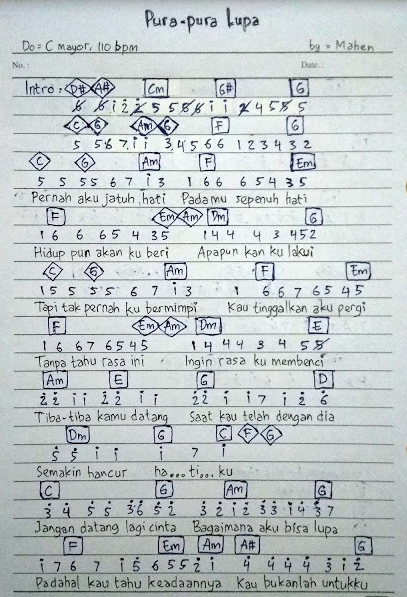 Pura-pura Lupa
Do = C mayor, 110 bpm by = Mahen
No. : Date. :
Intro : D# A# Cm G# G
6 6 1 2 2 5 5 5 6 1 1 2 4 5 5 5
C G Am G F G
5 5 6 7 1 1 3 4 5 6 6 1 2 3 4 3 2
C G Am F Em
5 5 5 5 6 7 1 3 1 6 6 6 5 4 3 5
Pernah aku jatuh hati Padamu sepenuh hati
F Em Am Dm G
1 6 6 6 5 4 3 5 1 4 4 4 3 4 5 2
Hidup pun akan ku beri Apapun kan ku lakui
C G Am F Em
1 5 5 5 5 6 7 1 3 1 6 6 7 6 5 4 5
Tapi tak pernah ku bermimpi Kau tinggalkan aku pergi
F Em Am Dm E
1 6 6 7 6 5 4 5 1 4 4 4 3 4 5 5
Tanpa tahu rasa ini Ingin rasa ku membenci
Am E G D
2 2 1 1 2 2 1 1 2 2 1 1 7 1 2 6
Tiba-tiba kamu datang Saat kau telah dengan dia
Dm G C F G
5 5 1 1 1 7 1
Semakin hancur ha...ti...ku
C G Am G
3 4 5 5 3 6 5 2 3 2 1 2 3 3 1 4 3 7
Jangan datang lagi cinta Bagaimana aku bisa lupa
F Em Am A# G
1 7 6 7 1 5 6 5 5 2 1 4 4 4 4 3 1 2
Padahal kau tahu keadaannya Kau bukanlah untukku